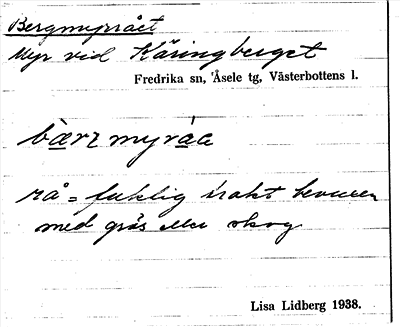 Bergmyrrået
Myr vid Käringberget
Fredrika sn, Åsele tg, Västerbottens l.
bærzmyråa
rå = fuktig trakt bevuxen
med gräs eller skog
Lisa Lidberg 1938.